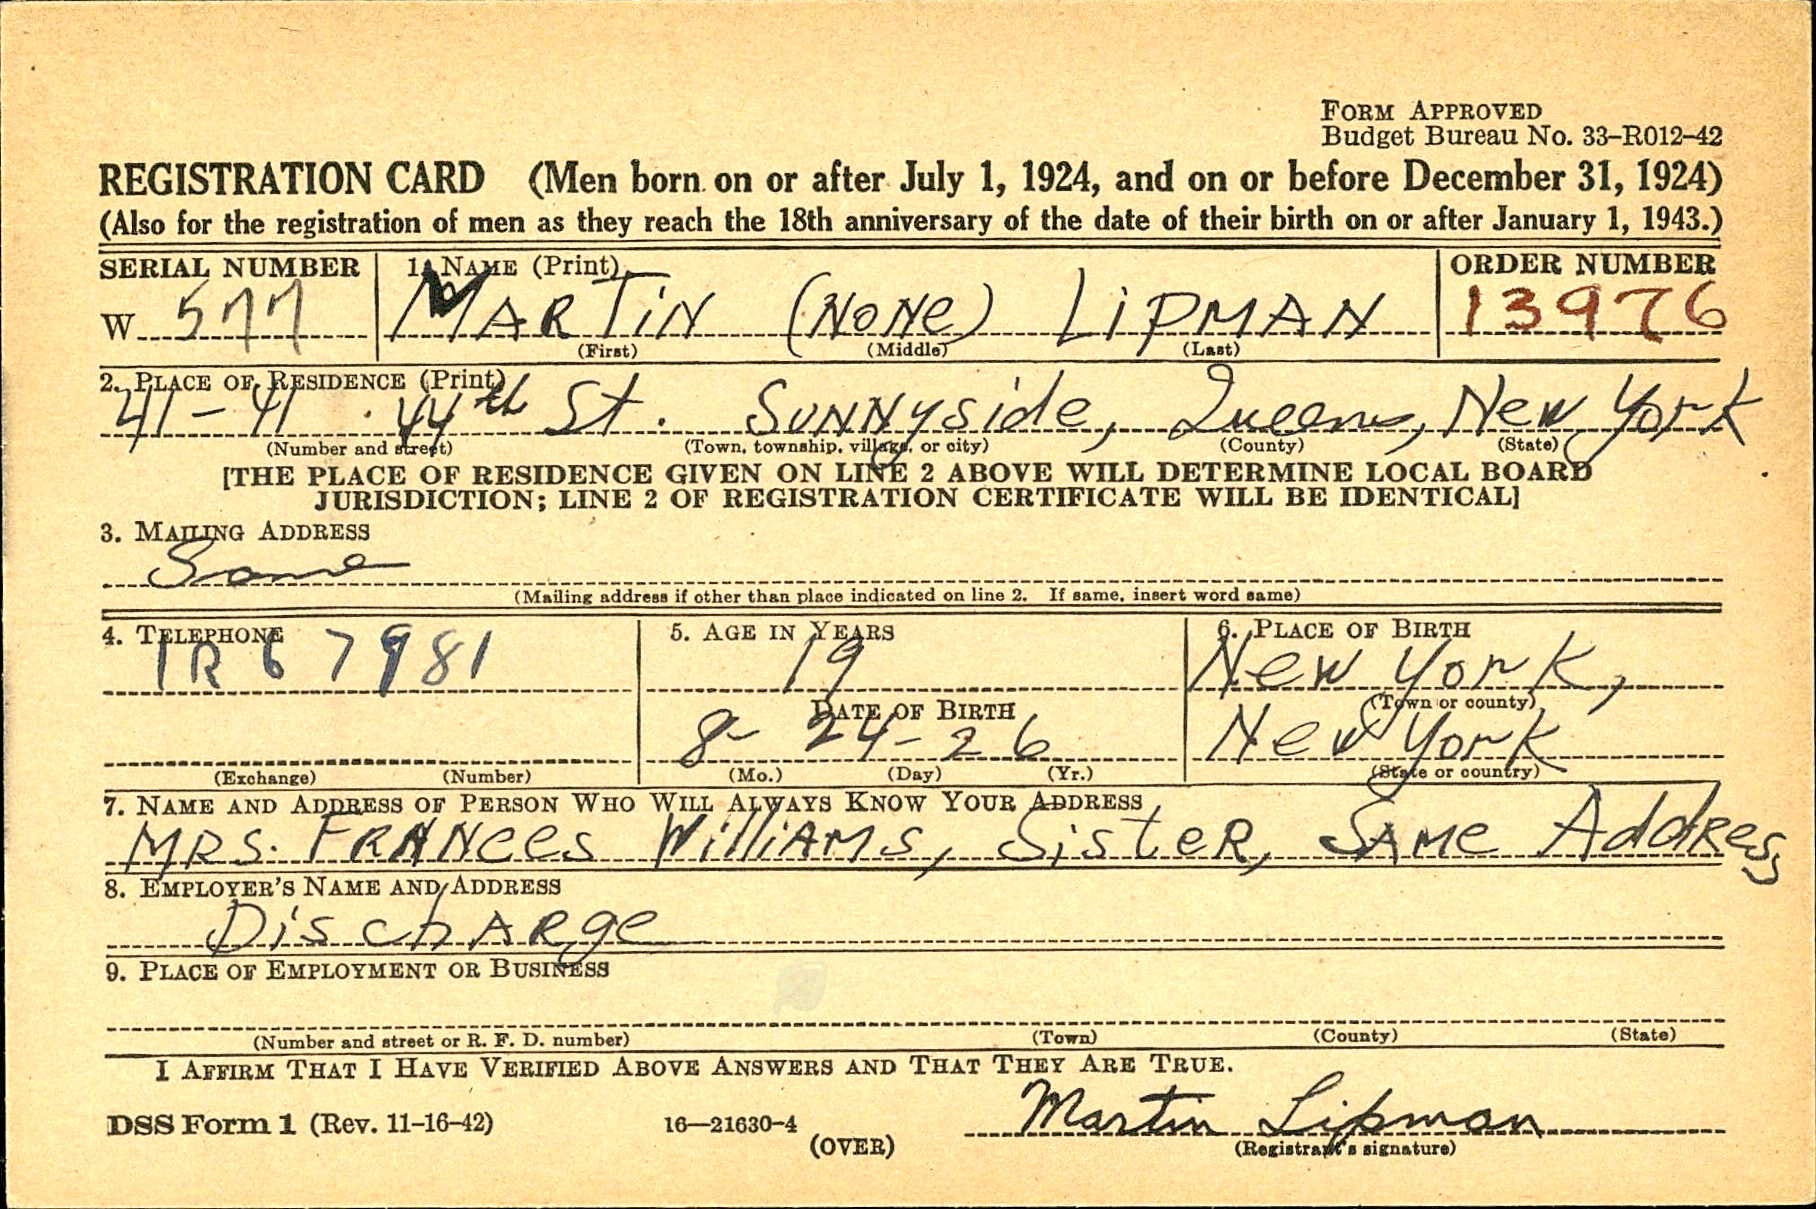 FORM APPROVED
Budget Bureau No. 33–R012–42
REGISTRATION CARD (Men born on or after July 1, 1924, and on or before December 31, 1924)
(Also for the registration of men as they reach the 18th anniversary of the date of their birth on or after January 1, 1943.)
SERIAL NUMBER 1. NAME (Print) ORDER NUMBER
W 577 MARTIN (NONE) LIPMAN 13976
(First) (Middle) (Last)
2. PLACE OF RESIDENCE (Print)
41-41 44th St. Sunnyside, Queens, New York
(Number and street) (Town, township, village, or city) (County) (State)
[THE PLACE OF RESIDENCE GIVEN ON LINE 2 ABOVE WILL DETERMINE LOCAL BOARD
JURISDICTION; LINE 2 OF REGISTRATION CERTIFICATE WILL BE IDENTICAL]
3. MAILING ADDRESS
Same
(Mailing address if other than place indicated on line 2. If same, insert word same)
4. TELEPHONE 5. AGE IN YEARS 6. PLACE OF BIRTH
IR 6 7981 19 New York,
DATE OF BIRTH (Town or county)
8-24-26 New York
(Exchange) (Number) (Mo.) (Day) (Yr.) (State or country)
7. NAME AND ADDRESS OF PERSON WHO WILL ALWAYS KNOW YOUR ADDRESS
MRS. FRANCES WilliAMS, SisteR, SAMe AddRess
8. EMPLOYER'S NAME AND ADDRESS
DischARge
9. PLACE OF EMPLOYMENT OR BUSINESS
(Number and street or R. F. D. number) (Town) (County) (State)
I AFFIRM THAT I HAVE VERIFIED ABOVE ANSWERS AND THAT THEY ARE TRUE.
Martin Lipman
DSS Form 1 (Rev. 11-16-42) 16—21630-4 (OVER) (Registrant's signature)